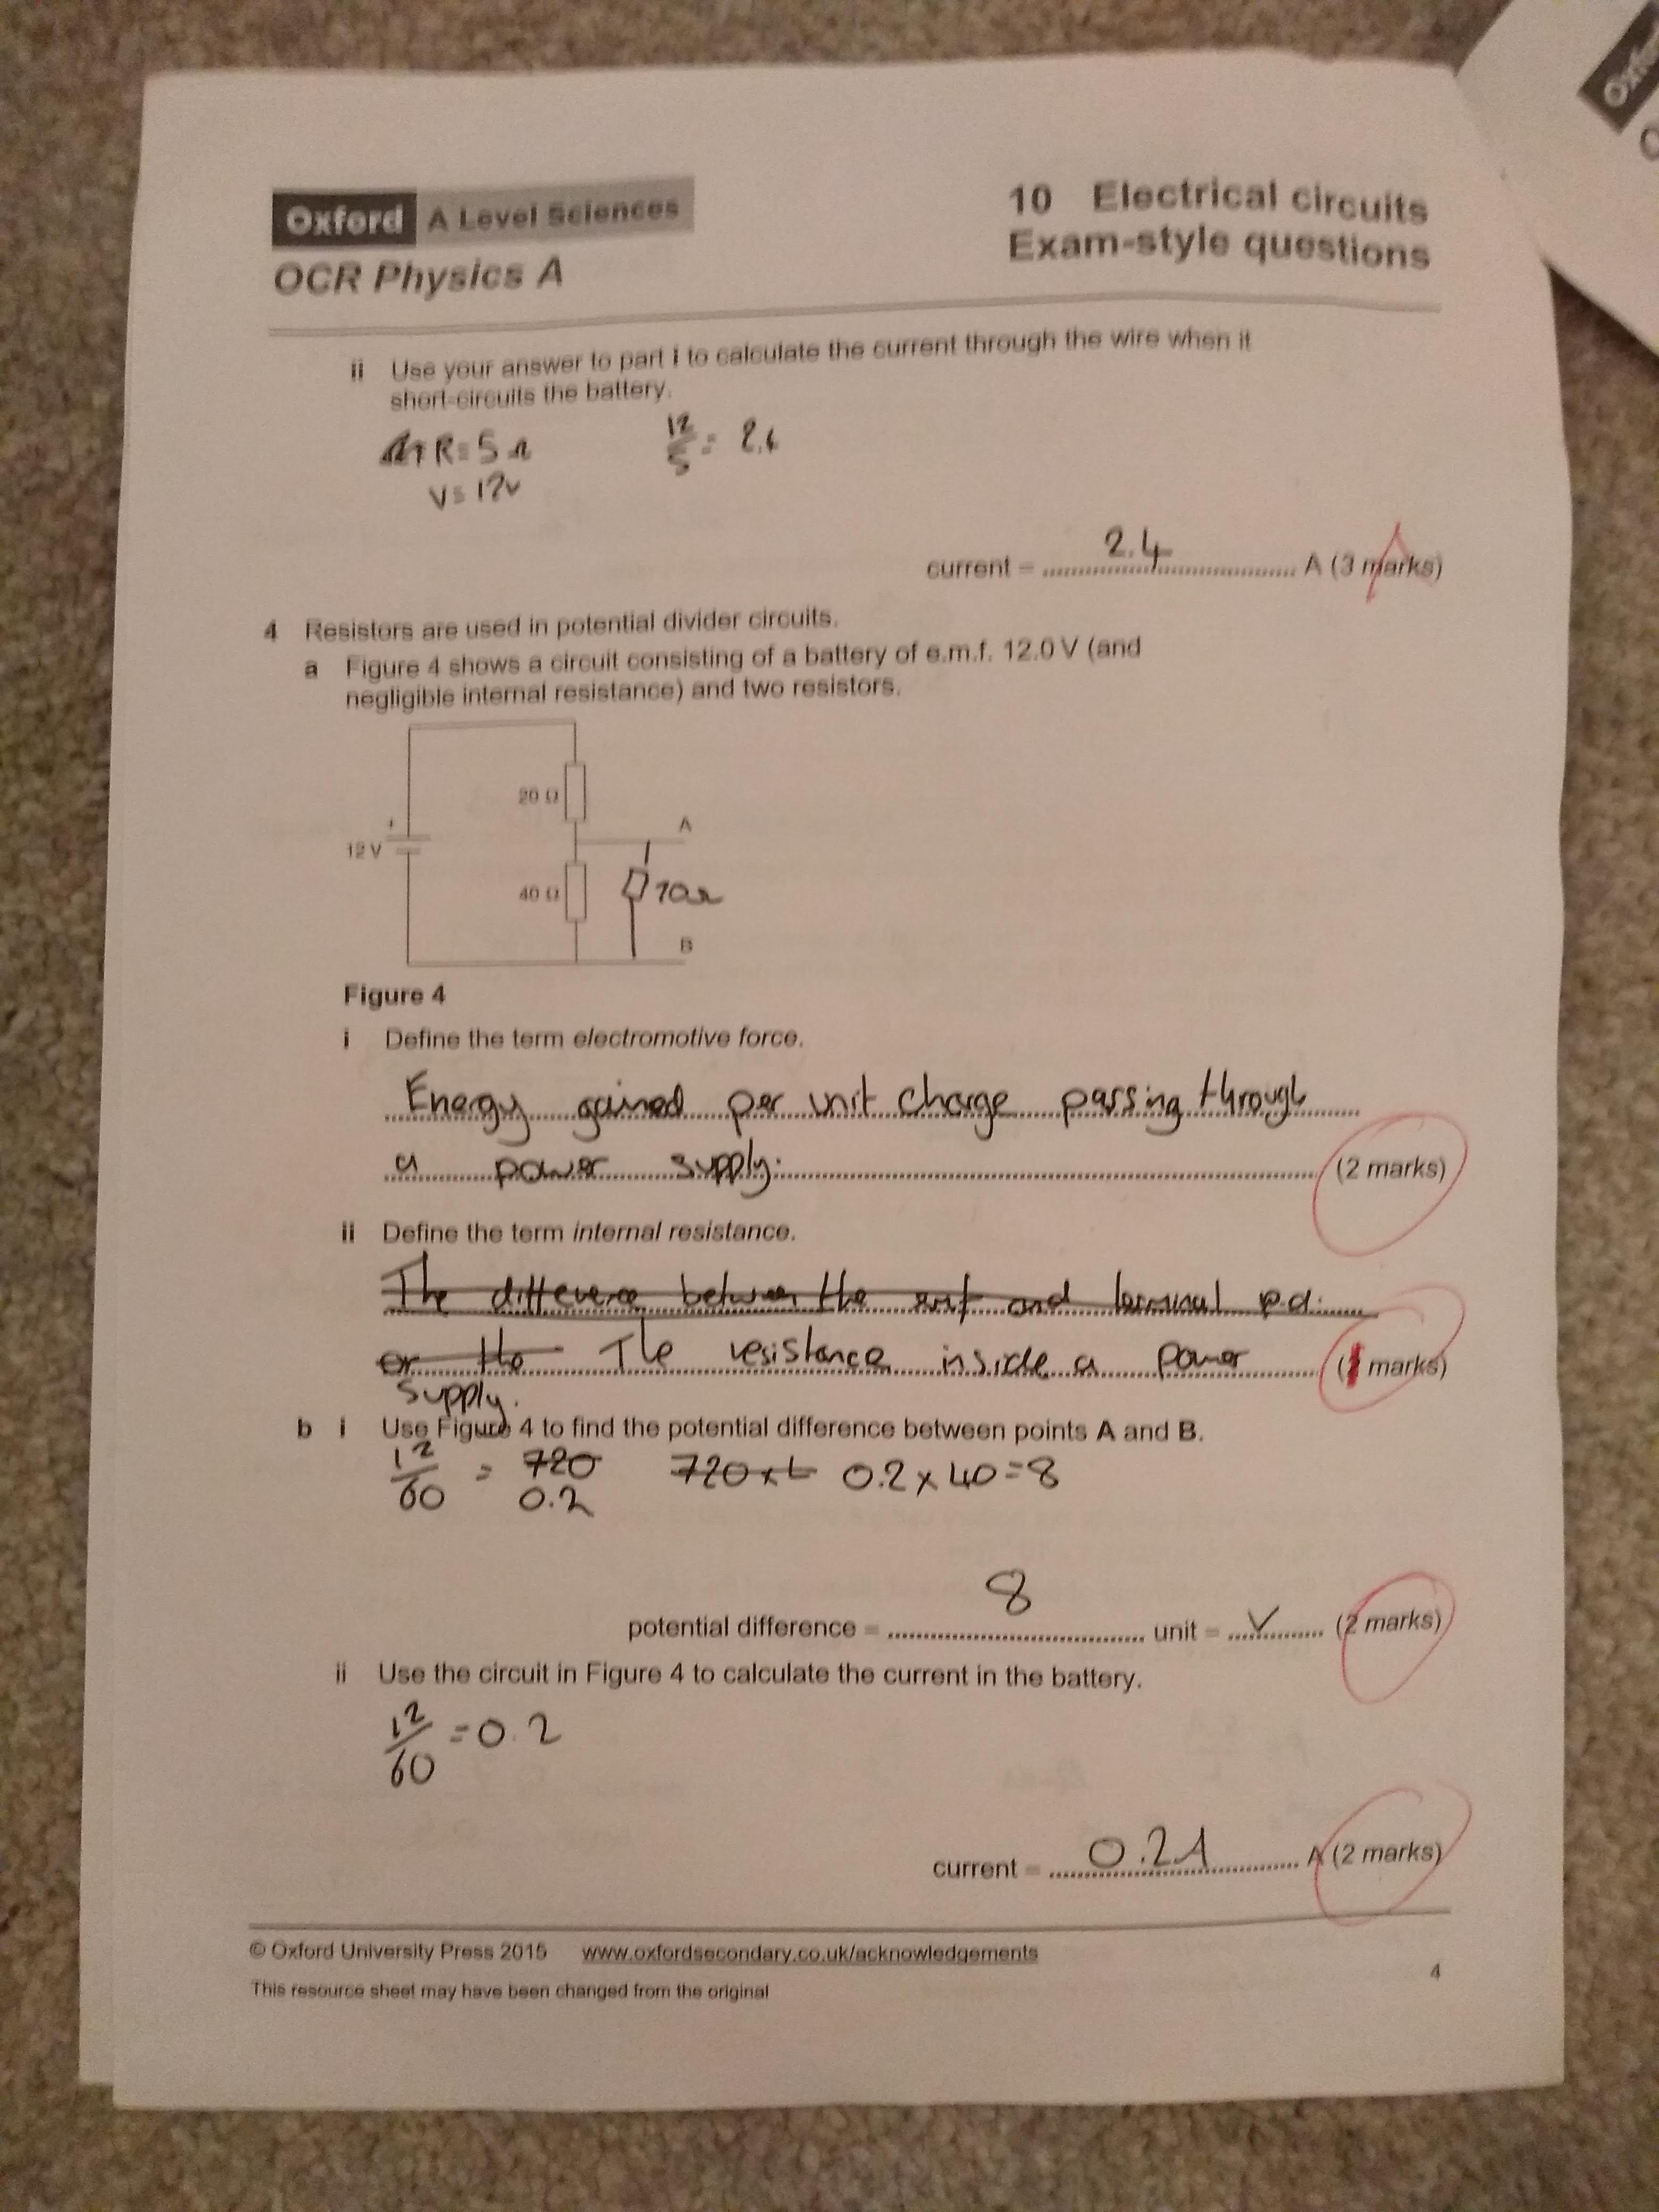 Oxford A Level Sciences
OCR Physics A
10 Electrical circuits
Exam-style questions
Oxfo
ii Use your answer to part i to calculate the current through the wire when it
short-circuits the battery.
R = 5 Ω
V = 12v
12/5 = 2.4
current = 2.4 A (3 marks)
4 Resistors are used in potential divider circuits.
a Figure 4 shows a circuit consisting of a battery of e.m.f. 12.0 V (and
negligible internal resistance) and two resistors.
20 Ω
A
12 V
+
40 Ω
B
Figure 4
i Define the term electromotive force.
Energy gained per unit charge passing through
a power supply. (2 marks)
ii Define the term internal resistance.
The difference between the emf and terminal p.d.
or the The resistance inside a power (1 marks)
supply.
b i Use Figure 4 to find the potential difference between points A and B.
12/60 = 720 720 x 0.2 x 40 = 8
0.2
potential difference = 8 unit = V (2 marks)
ii Use the circuit in Figure 4 to calculate the current in the battery.
12/60 = 0.2
current = 0.2A A (2 marks)
© Oxford University Press 2015 www.oxfordsecondary.co.uk/acknowledgements
4
This resource sheet may have been changed from the original